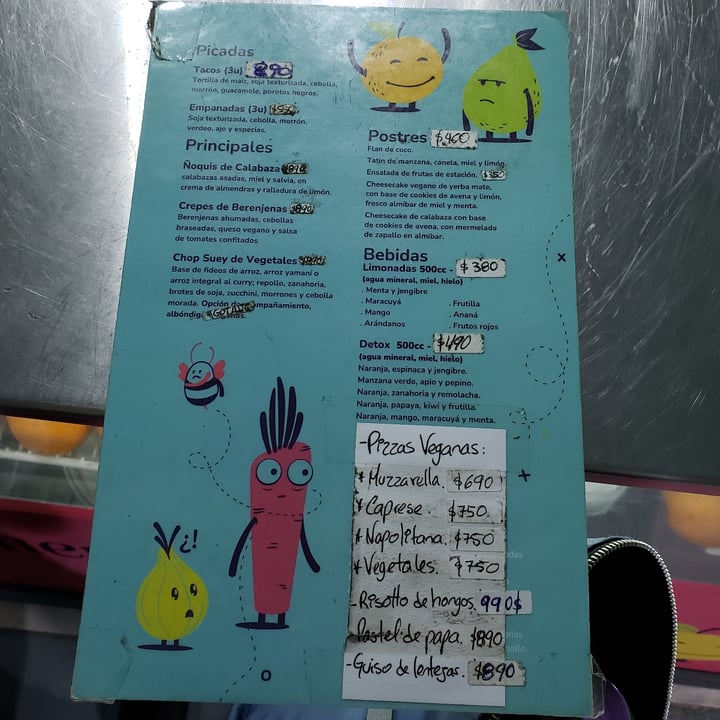 Picadas
Tacos (3u) 890
Tortilla de maíz, soja texturizada, cebolla,
morrón, guacamole, porotos negros.
Empanadas (3u) $550
Soja texturizada, cebolla, morrón,
verdeo, ajo y especias.
Principales
Ñoquis de Calabaza $890
calabazas asadas, miel y salvia, en
crema de almendras y ralladura de limón.
Crepes de Berenjenas $890
Berenjenas ahumadas, cebollas
braseadas, queso vegano y salsa
de tomates confitados.
Chop Suey de Vegetales $890
Base de fideos de arroz, arroz yamaní o
arroz integral al curry; repollo, zanahoria,
brotes de soja, zucchini, morrones y cebolla
morada. Opción de acompañamiento,
¿!
o
Postres $400
Flan de coco.
Tatin de manzana, canela, miel y limón.
Ensalada de frutas de estación. $350
Cheesecake vegano de yerba mate,
con base de cookies de avena y limón,
fresco almíbar de miel y menta.
Cheesecake de calabaza con base
de cookies de avena, con mermelada
de zapallo en almíbar.
Bebidas
Limonadas 500cc - $380
(agua mineral, miel, hielo)
. Menta y jengibre
. Maracuyá . Frutilla
. Mango . Ananá
. Arándanos . Frutos rojos
Detox 500cc - $490
(agua mineral, miel, hielo)
Naranja, espinaca y jengibre.
Manzana verde, apio y pepino.
Naranja, zanahoria y remolacha.
Naranja, papaya, kiwi y frutilla.
Naranja, mango, maracuyá y menta.
-Pizzas Veganas:
* Muzzarella. $690
* Caprese. $750
* Napolitana. $750
* Vegetales. $750
-Risotto de hongos. 990$
-Pastel de papa. $890
-Guiso de lentejas. $890